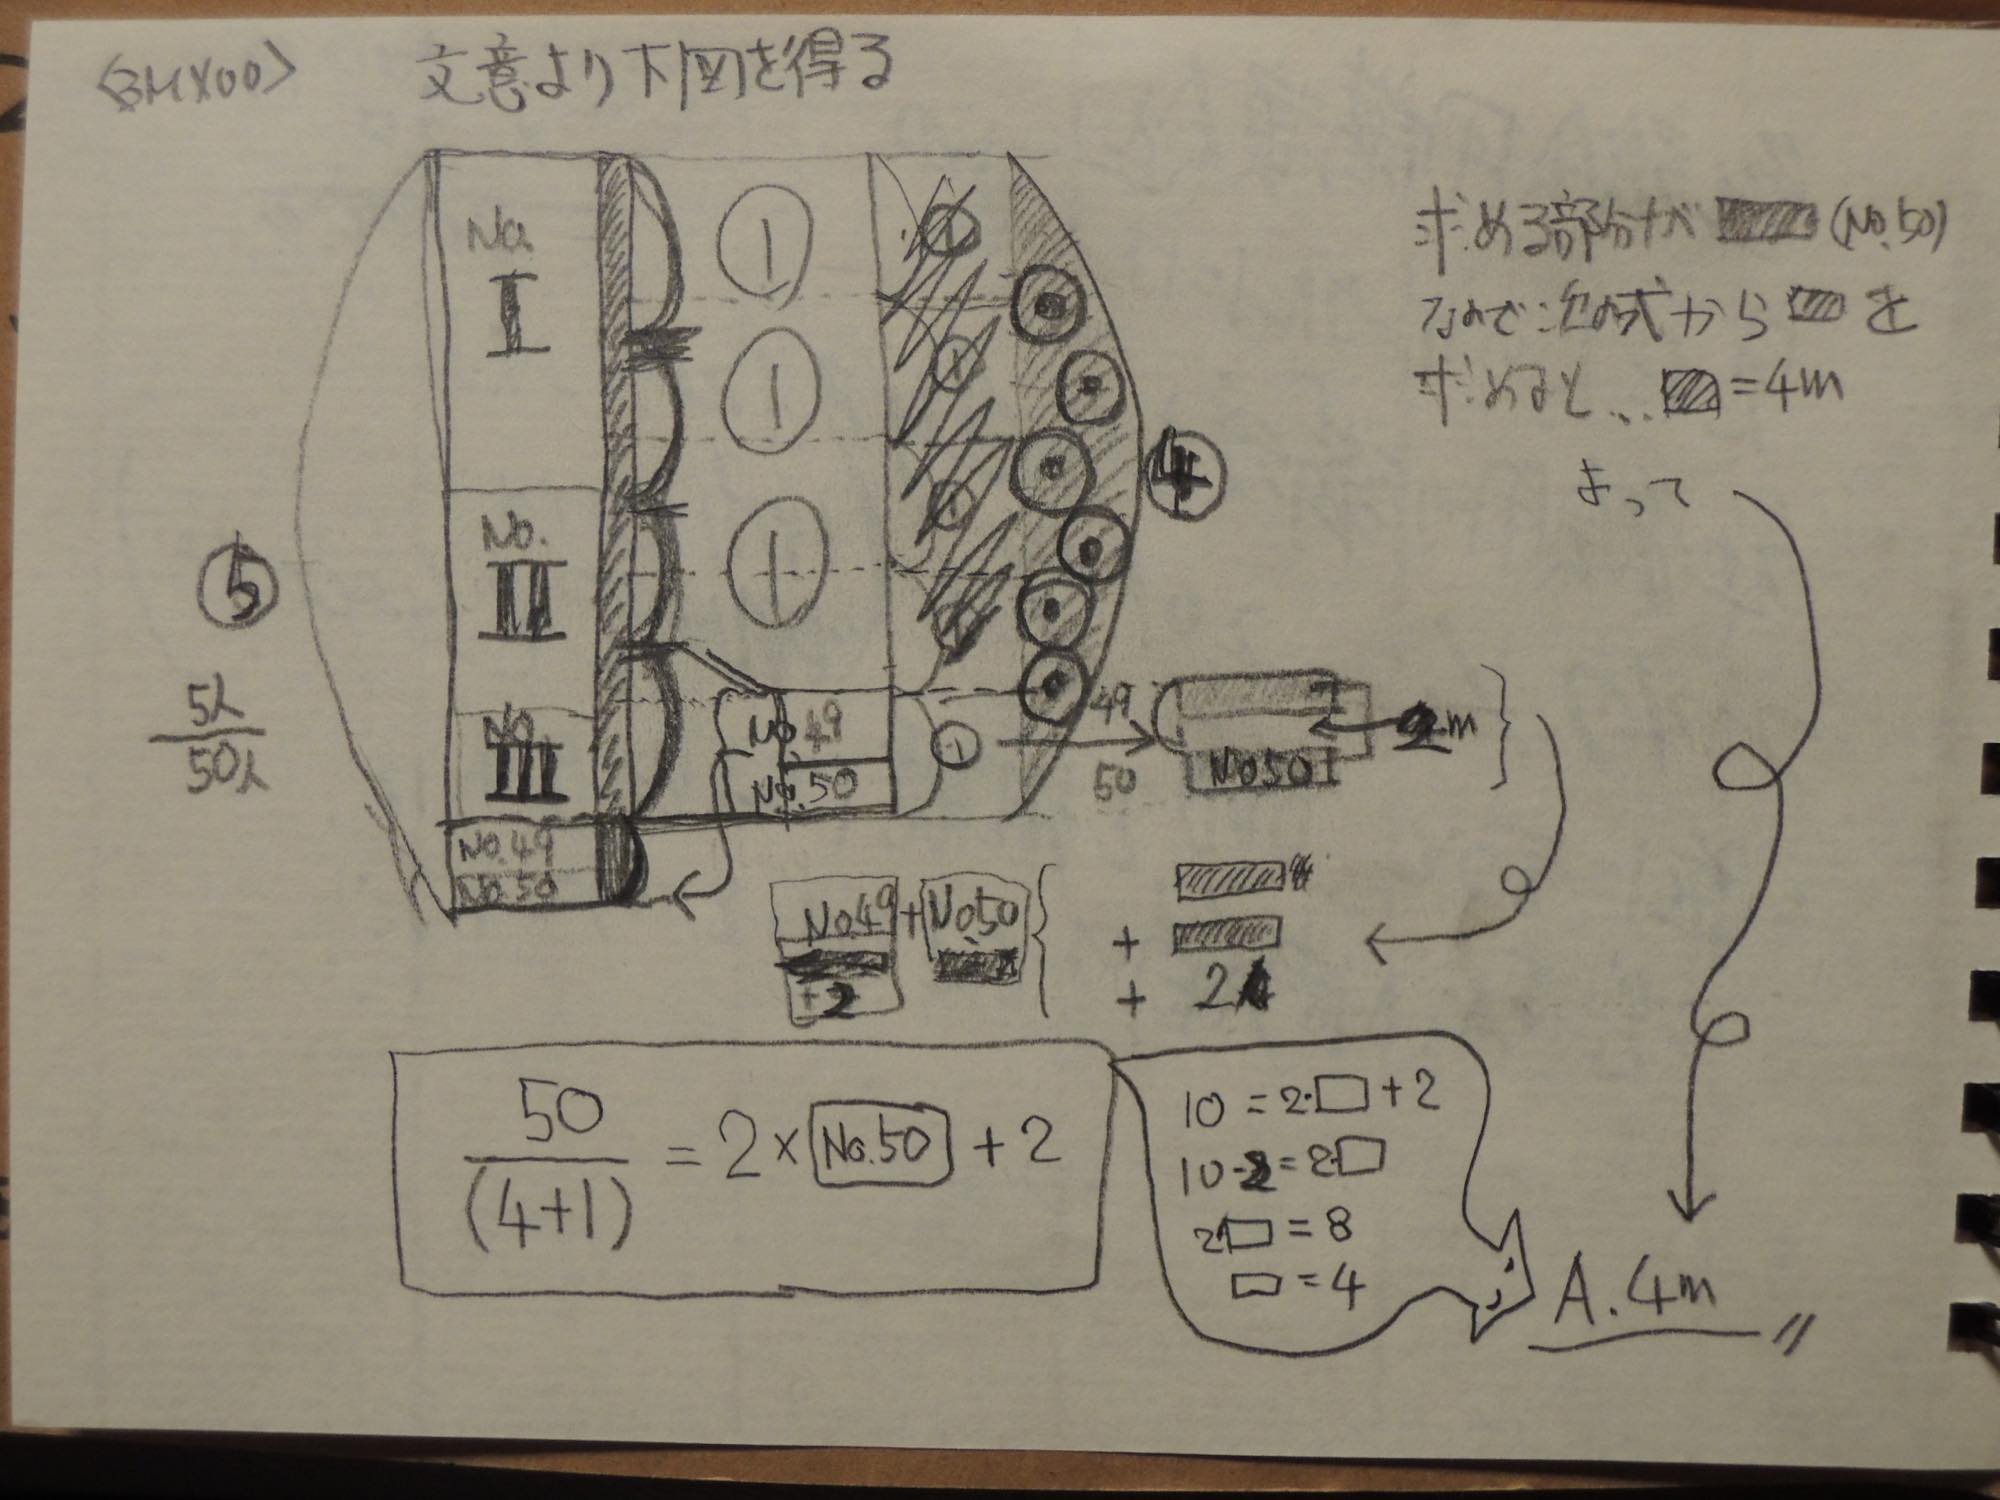 文意より下図を得る
求める部分が (No.50)
なので次の式から を
求めると... =4m
よって
No.
I
No.
II
No.
III
①
①
①
①
①
①
①
①
④
⑤
5人
50人
No.49
No.50
No.49
No.50
49
50
No50
2m
No.49+No.50
+2
+
+ 2
50
(4+1)
= 2×No.50+2
10=2·□+2
10-2=2·□
2□=8
□=4
A.4m